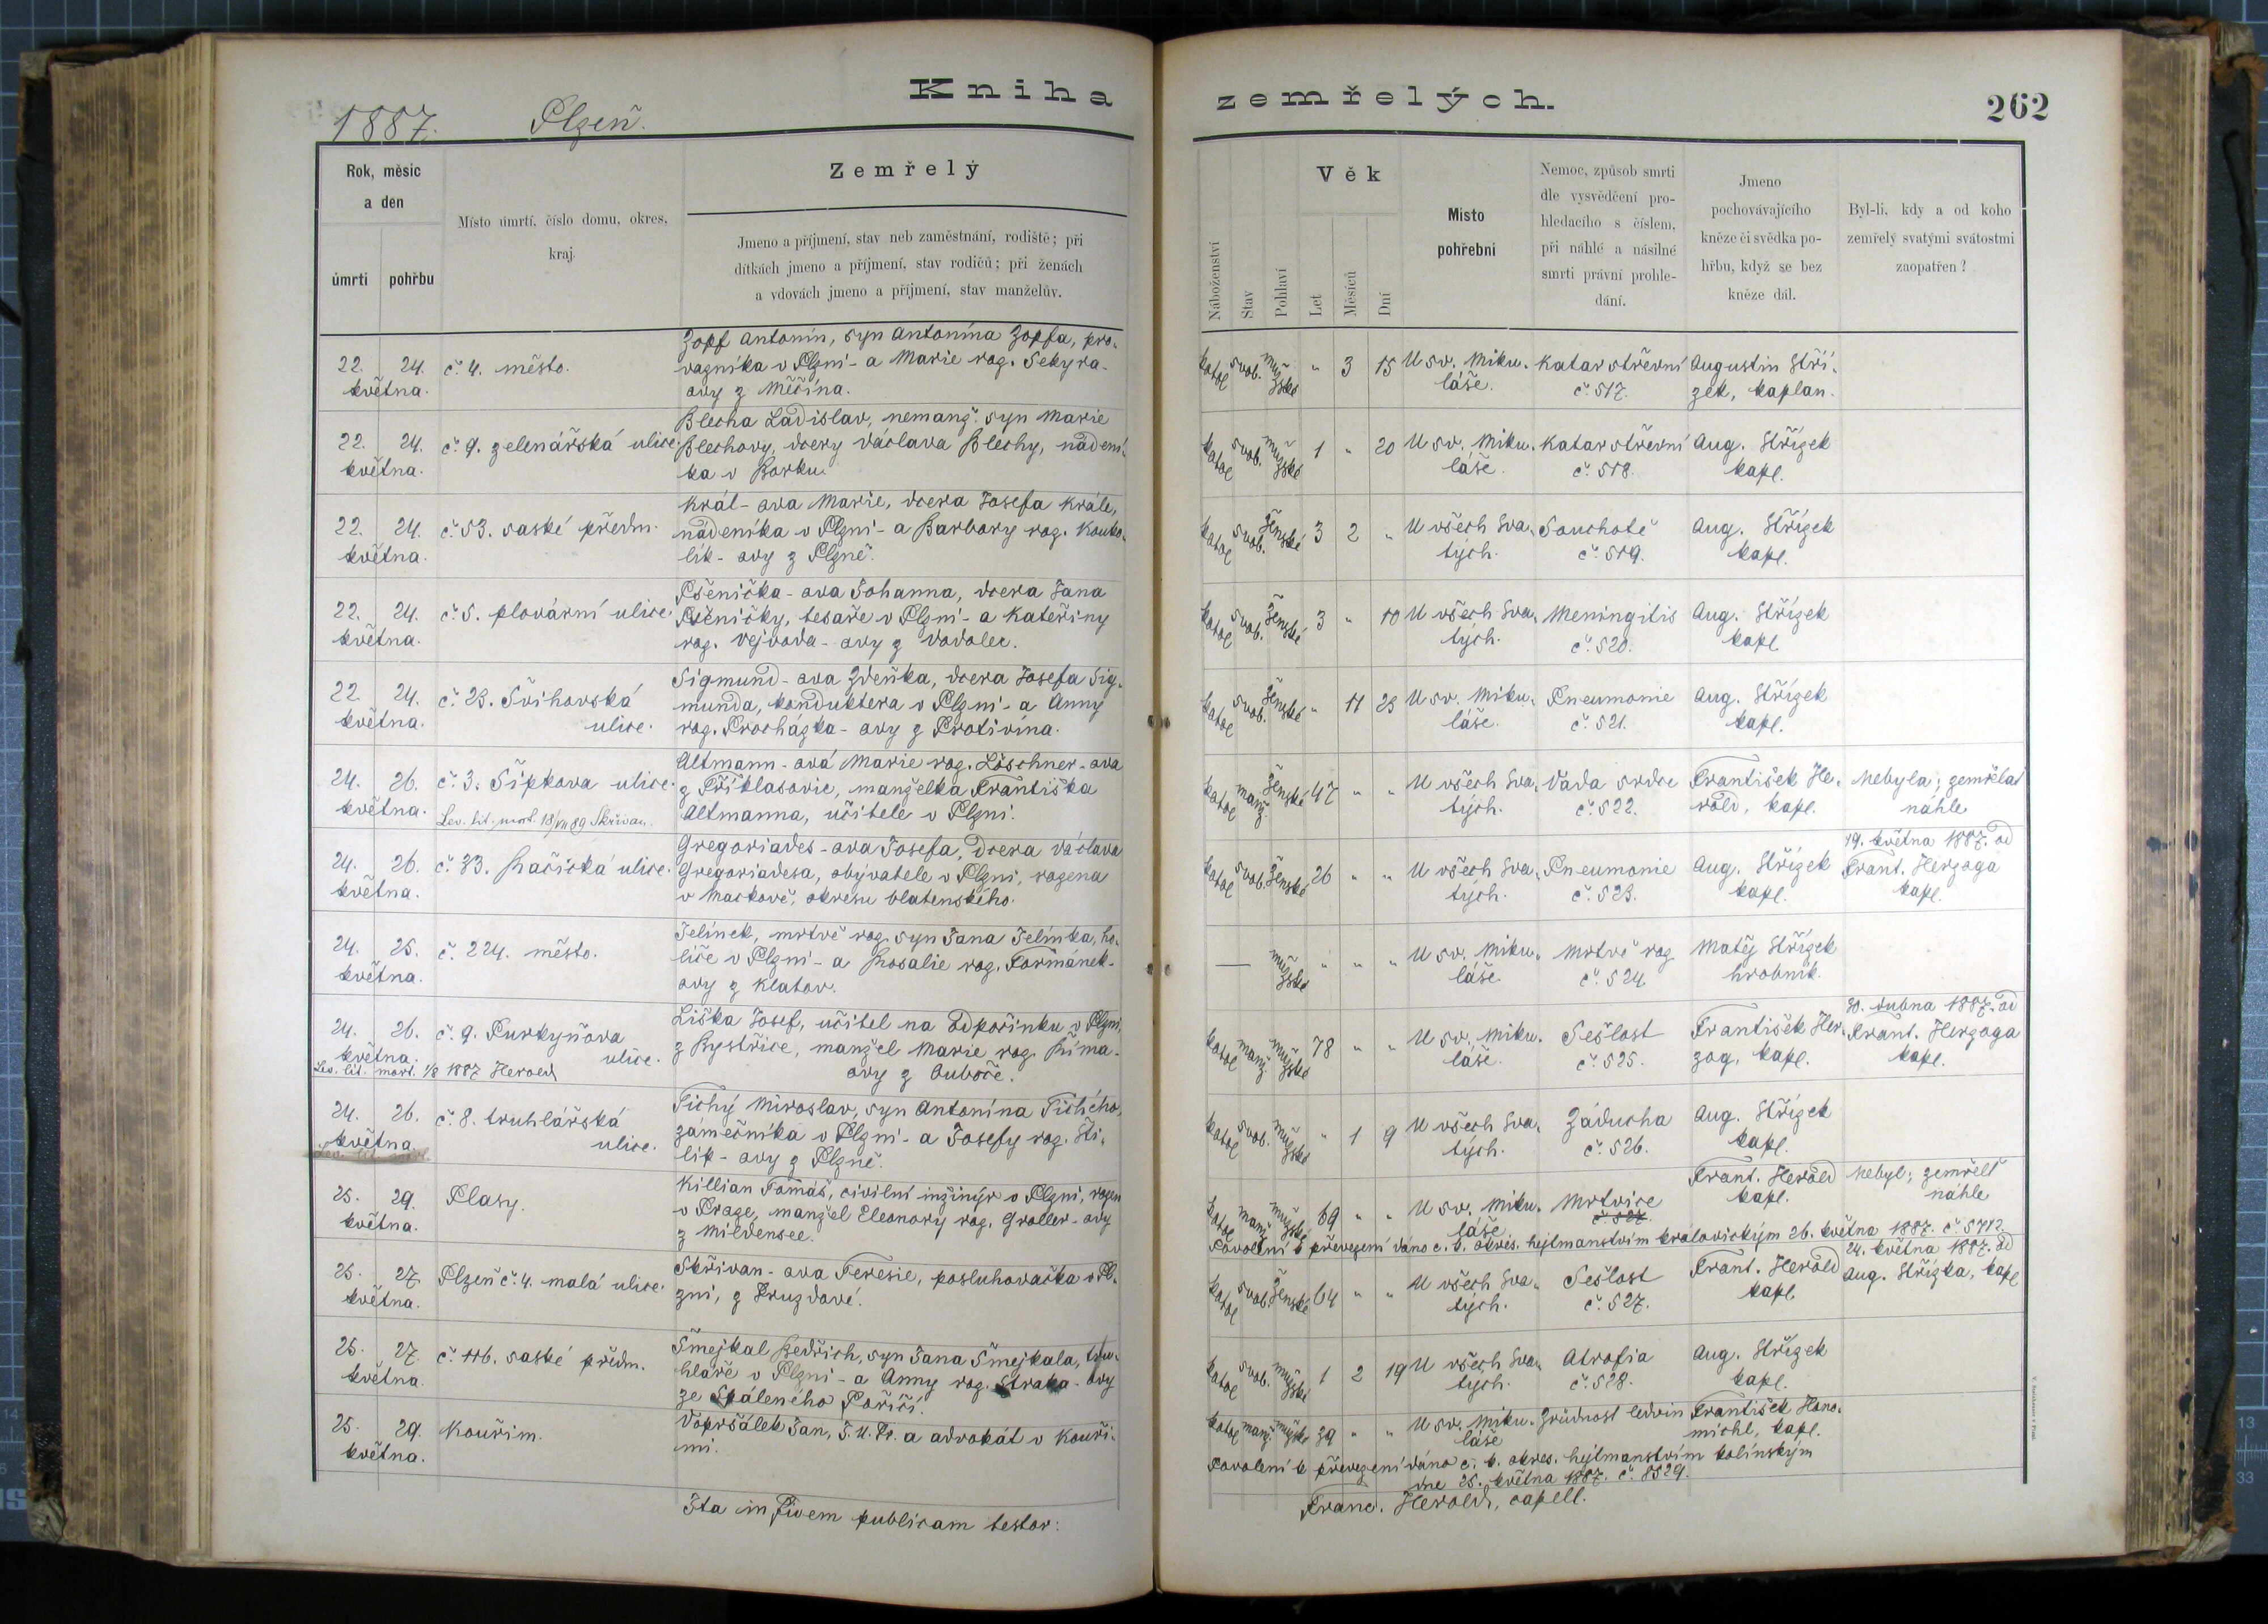 Kniha zemřelých.
262
1887. Plzeň.
Rok, měsíc
a den
úmrtí
pohřbu
Místo úmrtí, číslo domu, okres,
kraj.
Zemřelý
Jmeno a příjmení, stav neb zaměstnání, rodiště; při
dítkách jmeno a příjmení, stav rodičů; při ženách
a vdovách jmeno a příjmení, stav manželův.
Náboženství
Stav
Pohlaví
Věk
Let
Měsíců
Dní
Místo
pohřební
Nemoc, způsob smrti
dle vysvědčení pro-
hledacího s číslem,
při náhlé a násilné
smrti právní prohle-
dání.
Jmeno
pochovávajícího
kněze či svědka po-
hřbu, když se bez
kněze dál.
Byl-li, kdy a od koho
zemřelý svatými svátostmi
zaopatřen?
22. 24. č. 4. město.
května.
Zopf Antonín, syn Antonína Zopfa, pro-
vazníka v Plzni - a Marie roz. Sekyra-
ovy z Měčína.
katol svob. muž
zské " 3 15 U sv. Miku- Katar střevní Augustin Stří-
láše. č. 517. zek, kaplan.
22. 24. č. 9. zelenářská ulice.
května.
Blecha Ladislav, nemanž. syn Marie
Blechovy, dcery Václava Blechy, nádení-
ka v Borku.
katol svob. muž
zské 1 " 20 U sv. Miku- Katar střevní Aug. Střízek
láše. č. 518. kapl.
22. 24. č. 53. saské předm.
května.
Král-ova Marie, dcera Josefa Krále,
nádeníka v Plzni - a Barbory roz. Kouko-
lík-ovy z Plzně.
katol svob. ženské 3 2 " U všech Sva- Souchotě Aug. Střízek
tých. č. 519. kapl.
22. 24. č. 5. plovární ulice.
května.
Pšenička-ova Johanna, dcera Jana
Pšeničky, tesaře v Plzni - a Kateřiny
roz. Vejvoda-ovy z Vodolec.
katol svob. ženské 3 " 10 U všech Sva- Meningitis Aug. Střízek
tých. č. 520. kapl.
22. 24. č. 23. Švihovská
května. ulice.
Sigmund-ova Zdeňka, dcera Josefa Sig-
munda, konduktera v Plzni - a Anny
roz. Procházka-ovy z Protivína.
katol svob. ženské " 11 23 U sv. Miku- Pneumonie Aug. Střízek
láše. č. 521. kapl.
24. 26. č. 3. Šípkova ulice.
května. Lev. lit. mort. 18/VII 89 Skřivan.
Altmann-ová Marie roz. Löschner-ova
z Příklasovic, manželka Františka
Altmanna, učitele v Plzni.
katol manž. ženské 47 " " U všech Sva- Vada srdce František He- Nebyla; zemřela
tých. č. 522. rold, kapl. náhle
24. 26. č. 33. Račická ulice.
května.
Gregoriades-ova Josefa, dcera Václava
Gregoriadesa, obývatele v Plzni, rozena
v Mačkově, okresu blatenského.
katol svob. ženské 26 " " U všech Sva- Pneumonie Aug. Střízek 19. května 1887. od
tých. č. 523. kapl. Frant. Herzoga
kapl.
24. 25. č. 224. město.
května.
Jelínek, mrtvě roz. syn Jana Jelínka, ho-
liče v Plzni - a Rosalie roz. Formánek-
ovy z Klatov.
— muž
zské " " " U sv. Miku- Mrtvě roz Matěj Střízek
láše. č. 524 hrobník.
24. 26. č. 9. Purkyňova
května. ulice.
Lev. lit. mort. 1/8 1887 Herold
Liška Josef, učitel na odpočinku v Plzni,
z Bystřice, manžel Marie roz. Říma-
ovy z Ouboče.
katol manž. muž
zské 78 " " U sv. Miku- Sešlost František Her- 30. dubna 1887. od
láše. č. 525. zog, kapl. Frant. Herzoga
kapl.
24. 26. č. 8. truhlářská
května ulice.
Tichý Miroslav, syn Antonína Tichého,
zámečníka v Plzni - a Josefy roz. Šti-
lip-ovy z Plzně.
katol svob. muž
zské " 1 9 U všech Sva- Záducha Aug. Střízek
tých. č. 526. kapl.
25. 29. Plasy.
května.
Killian Tomáš, civilní inžinýr v Plzni, rozen
v Praze, manžel Eleonory roz. Groller-ovy
z Mildensee.
katol manž mužské 69 " " U sv. Miku- Mrtvice Frant. Herold Nebyl; zemřel
láše č. 527. kapl. náhle
Povolení k převezení dáno c. k. okres. hejtmanstvím kralovickým 26. května 1887. č. 5712.
25. 27 Plzeň č. 4. malá ulice.
května.
Skřivan-ova Teresie, posluhovačka v Pl-
zni, z Hruzdové.
katol svob. ženské 64 " " U všech Sva- Sešlost Frant. Herold 24. května 1887. od
tých. č. 527. kapl. Aug. Střízka, kapl
25. 27. č. 116. saské předm.
května.
Šmejkal Bedřich, syn Jana Šmejkala, tru-
hláře v Plzni - a Anny roz. Straka-ovy
ze Spáleného Poříčí.
katol svob. mužské 1 2 19 U všech Sva- Atrofia Aug. Střízek
tých. č. 528. kapl.
25. 29. Kouřim.
května.
Vopršálek Jan, J. U. Dr. a advokát v Kouři-
mi.
katol manž mužské 39 " " U sv. Miku- Zrůdnost ledvin František Hono-
láše michl, kapl.
Povolení k převezení dáno c. k. okres. hejtmanstvím kolínským
dne 25. května 1887. č. 8529.
Ita in fidem publicam testor: Franc. Herold, capell.